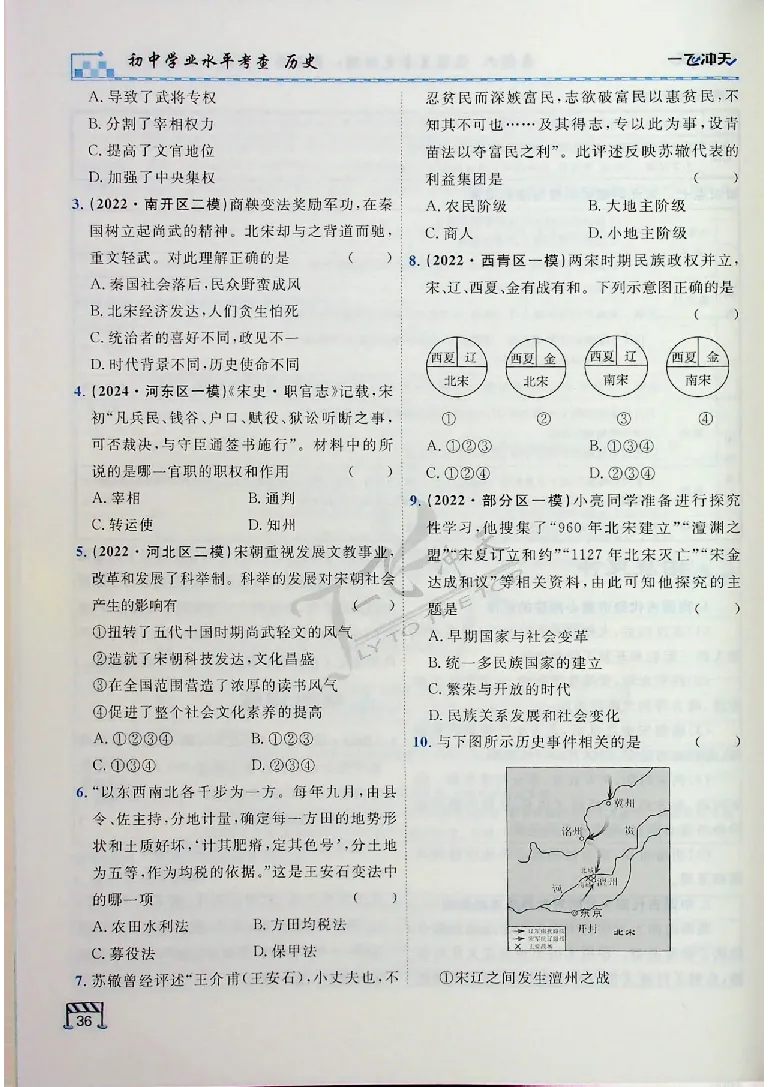 初中学业水平考查 历史
一飞冲天
A. 导致了武将专权
B. 分割了宰相权力
C. 提高了文官地位
D. 加强了中央集权
3. (2022·南开区二模)商鞅变法奖励军功,在秦
国树立起尚武的精神。北宋却与之背道而驰,
重文轻武。对此理解正确的是 ( )
A. 秦国社会落后,民众野蛮成风
B. 北宋经济发达,人们贪生怕死
C. 统治者的喜好不同,政见不一
D. 时代背景不同,历史使命不同
4. (2024·河东区一模)《宋史·职官志》记载,宋
初“凡兵民、钱谷、户口、赋役、狱讼听断之事,
可否裁决,与守臣通签书施行”。材料中的所
说的是哪一官职的职权和作用 ( )
A. 宰相 B. 通判
C. 转运使 D. 知州
5. (2022·河北区二模)宋朝重视发展文教事业,
改革和发展了科举制。科举的发展对宋朝社会
产生的影响有 ( )
①扭转了五代十国时期尚武轻文的风气
②造就了宋朝科技发达,文化昌盛
③在全国范围营造了浓厚的读书风气
④促进了整个社会文化素养的提高
A. ①②③④ B. ①②③
C. ①③④ D. ②③④
6. “以东西南北各千步为一方。每年九月,由县
令、佐主持,分地计量,确定每一方田的地势形
状和土质好坏,‘计其肥瘠,定其色号’,分土地
为五等,作为均税的依据。”这是王安石变法中
的哪一项 ( )
A. 农田水利法 B. 方田均税法
C. 募役法 D. 保甲法
7. 苏辙曾经评述“王介甫(王安石),小丈夫也,不
36
忍贫民而深嫉富民,志欲破富民以惠贫民,不
知其不可也……及其得志,专以此为事,设青
苗法以夺富民之利”。此评述反映苏辙代表的
利益集团是 ( )
A. 农民阶级 B. 大地主阶级
C. 商人 D. 小地主阶级
8. (2022·西青区一模)两宋时期民族政权并立,
宋、辽、西夏、金有战有和。下列示意图正确的是
( )
西夏 辽 西夏 金 西夏 辽 西夏 金
北宋 北宋 南宋 南宋
① ② ③ ④
A. ①②③ B. ①③④
C. ①②④ D. ②③④
9. (2022·部分区一模)小亮同学准备进行探究
性学习,他搜集了“960 年北宋建立”“澶渊之
盟”“宋夏订立和约”“1127 年北宋灭亡”“宋金
达成和议”等相关资料,由此可知他探究的主
题是 ( )
A. 早期国家与社会变革
B. 统一多民族国家的建立
C. 繁荣与开放的时代
D. 民族关系发展和社会变化
10. 与下图所示历史事件相关的是 ( )
冀州
洺州
黄
河
澶州
东京
开封 北宋
①宋辽之间发生澶州之战